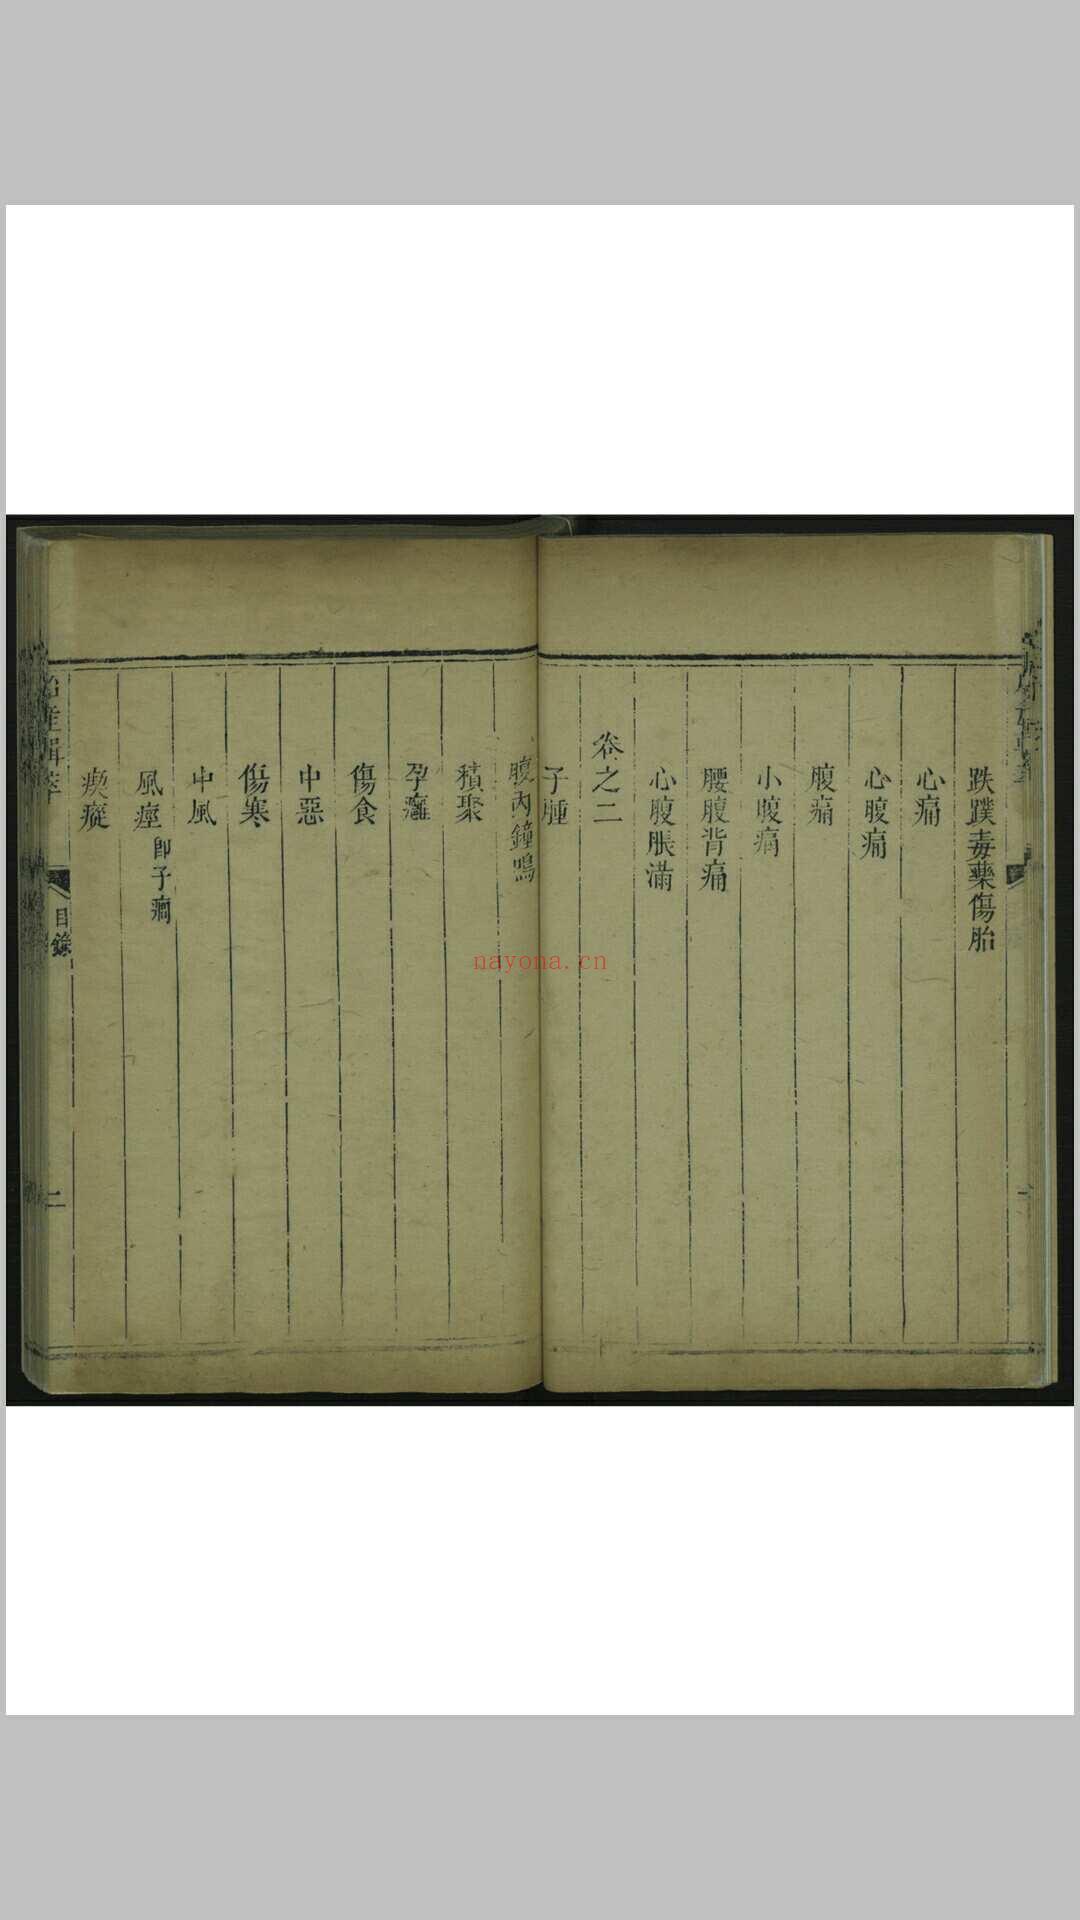 跌蹼毒藥傷胎
心痛
心腹痛
腹痛
小腹痛
腰腹背痛
心腹脹滿
卷之二
子腫
腹內鐘鳴
積聚
孕癰
傷食
中惡
傷寒
中風
風痙即子癎
瘈瘲
胎產輯萃
目錄
二
nayona.cn